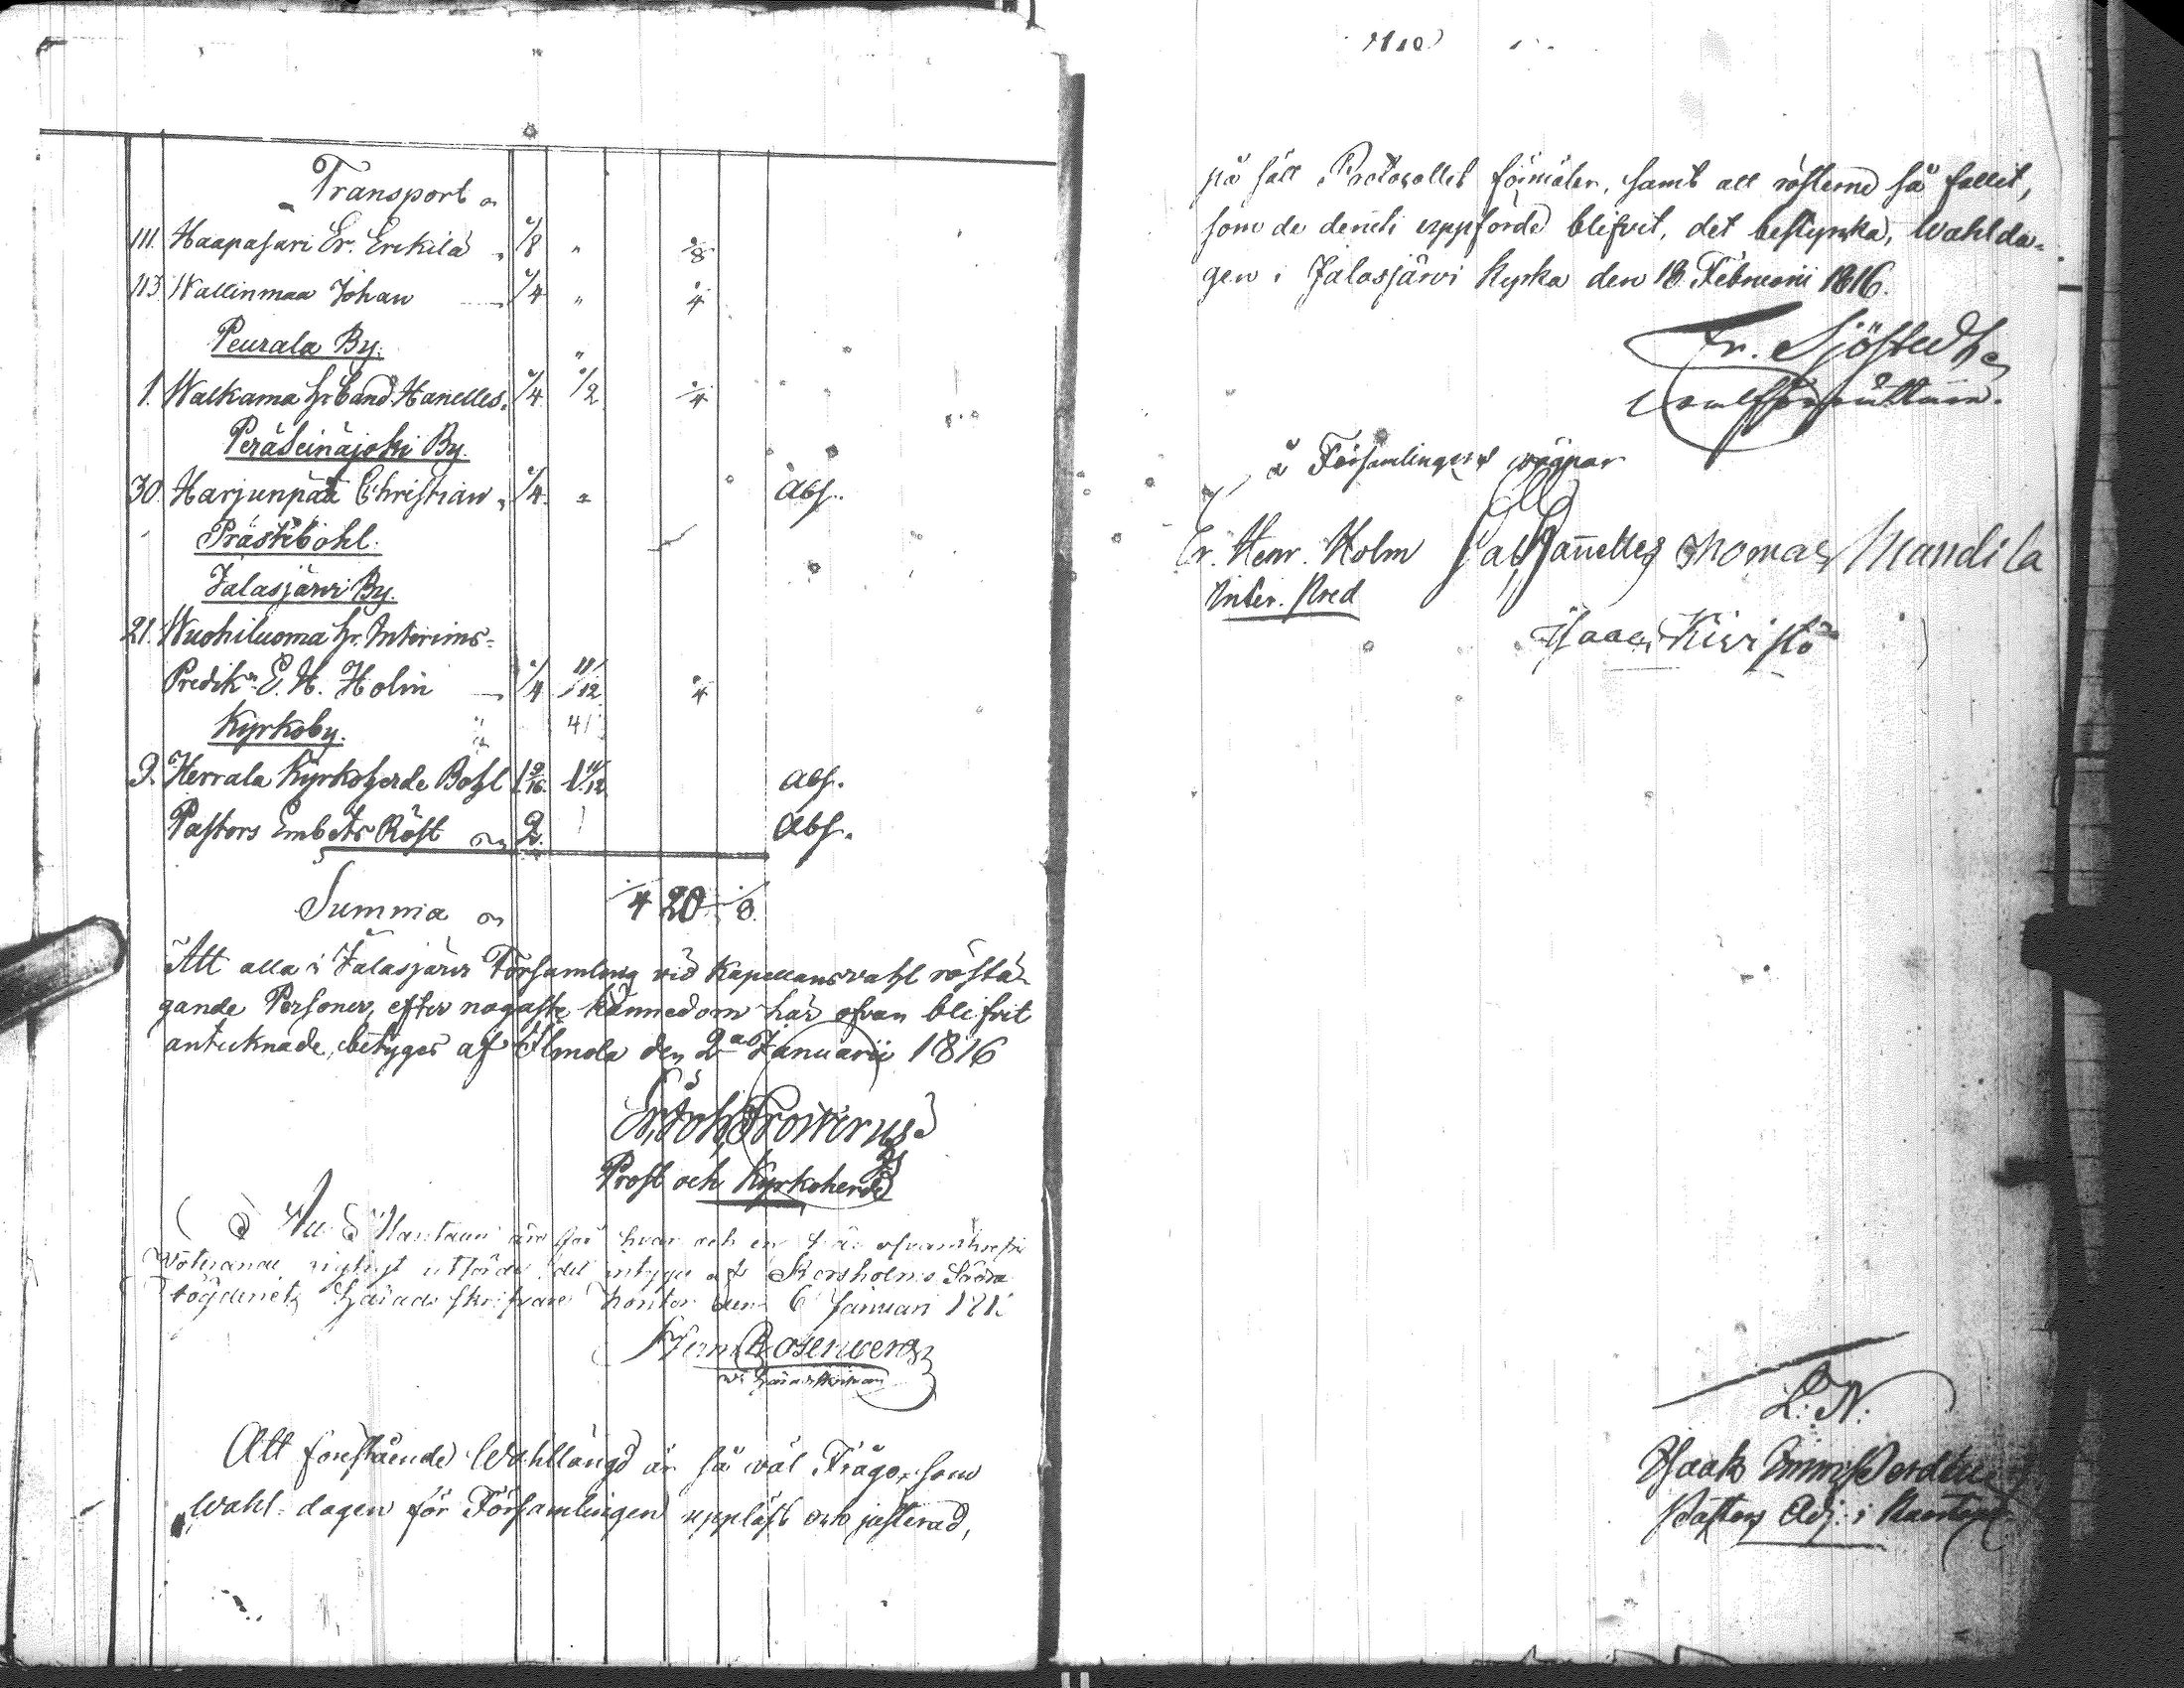 Transport
111. Haapasari Er. Erckilä 1/8 " 1/8
113 Wallinmaa Johan 1/4 " 1/4
Peurala By. "
1. Walkama Hanelles 1/4 1/2 1/4
Peräseinäjoki By.
30. Harjunpää Christian 1/4 " Abs.
Prästebohl.
Jalasjärvi By.
21. Wuohiluoma Hr. Interims-
Predikn. E. H. Holm 1/4 11/12 1/4
Kyrkoby.
9. Herrala Kyrkoherde Bohl 1 9/16 1 11/12 Abs.
Pastors Embets Röst 2. Abs.
Summa 1/4 20 1/8
Att alla i Jalasjärvi Församling vid Kapellansvahl röstä-
gande Personer, efter nogaste kännedom här ofvan blifvit
antecknade, betyges af Ilmola den 2a Januarii 1816
Prost och Kyrkoherde
Mantaen för hvar och en
voterande rigtigt utförde, det intyges af Korsholms Södra
Fögderiets Häradsskrifvare Kontor den 6 Januari
Herm Rosenverg
Att förestående Wahllängd är så wäl Frågo- som
Wahl-dagen för Församlingen uppläst och justerad,
på sätt Protocollet förmäler, samt att rösterne så fallit,
som de deruti uppförde blifvit, det bestyrka, Wahlda-
gen i Jalasjärvi Kyrka den 18 Februarii 1816.
Fr. Sjöstedt
å Församlingens vägnar
Er. Henr. Holm Hannelles Thomas Mandila
Inter. Pred
Isaac Kivistö
L. N.
Isaak
Pastors Adj. i